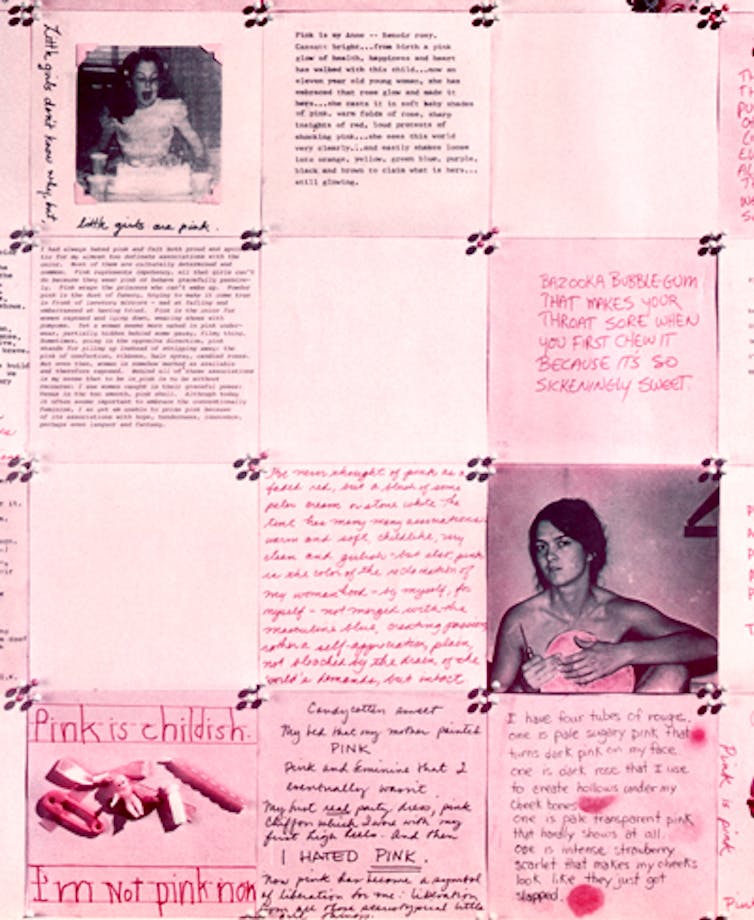 Little girls don't know why, but
little girls are pink.
Pink is my Anne -- Renoir rosy,
Cassatt bright...from birth a pink
glow of health, happiness and heart
has walked with this child...now an
eleven year old young woman, she has
embraced that rose glow and made it
hers...she casts it in soft baby shades
of pink, warm folds of rose, sharp
insights of red, loud protests of
shocking pink...she sees this world
very clearly...and easily shakes loose
into orange, yellow, green blue, purple,
black and brown to claim what is hers...
still glowing.
I had always hated pink and felt both proud and
for my almost too delicate associations with the
color. Most of them are culturally determined and
common. Pink represents all that girls can't
do because they wear pink or behave gracefully
Pink wraps the princess who can't wake up. Powder
pink is the dust of fantasy, hoping to make it come true
in front of
embarrassed at having tried. Pink is the color for
women exposed and lying down, wearing shoes with
pompoms. Yet a woman seems more naked in pink under-
wear, partially hidden behind some gauzy, filmy thing.
Sometimes, going in the opposite direction, pink
stands for piling up instead of stripping away: the
pink of confection, ribbons, hair spray, candied roses.
But even then, woman is somehow marked as available
and therefore exposed. Behind all of these associations
is my sense that to be in pink is to be without
recourse; I see women caught in their graceful poses:
Venus in the too smooth, pink shell. Although today
it often seems important to embrace the conventionally
feminine, I as yet am unable to prize pink because
of its associations with hope, tenderness, innocence,
perhaps even languor and fantasy.
BAZOOKA BUBBLE-GUM
THAT MAKES YOUR
THROAT SORE WHEN
YOU FIRST CHEW IT
BECAUSE IT'S SO
SICKENINGLY SWEET.
I've never thought of pink as a
faded red, but a blush of some
palen cream or stone white. The
tint has many many associations:
warm and soft, childlike, very
clean and girlish - but also, pink
is the color of the reclamation of
my womanhood - by myself, for
myself - not merged with the
masculine blue, creating passion,
rather a self-appreciation, plain,
not bleached by the drain of the
world's demands, but intact
Pink is childish.
I'm Not pink now
Candycotton sweet
My bed that my mother painted
PINK
Pink and feminine that I
eventually wasn't.
My first real party dress, pink
chiffon which I wore with my
first high heels. And then
I HATED PINK.
Now pink has become a symbol
of liberation for me: liberation
from all those stereotypical little
girl things.
I have four tubes of rouge.
one is pale sugary pink that
turns dark pink on my face
one is dark rose that I use
to create hollows under my
cheek bones
one is pale transparent pink
that hardly shows at all.
one is intense strawberry
scarlet that makes my cheeks
look like they just got
slapped.
Pink is pink